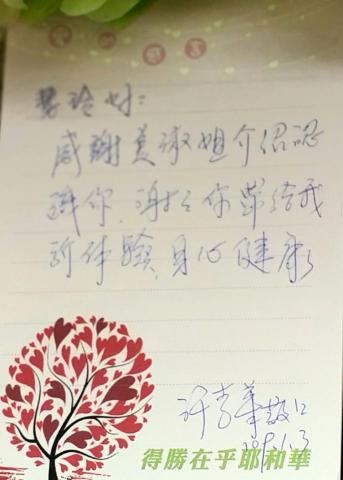 玲好：
感謝美淑姐介紹認
識你，謝謝你帶給我
新体驗，身心健康
許喜華敬上
得勝在乎耶和華